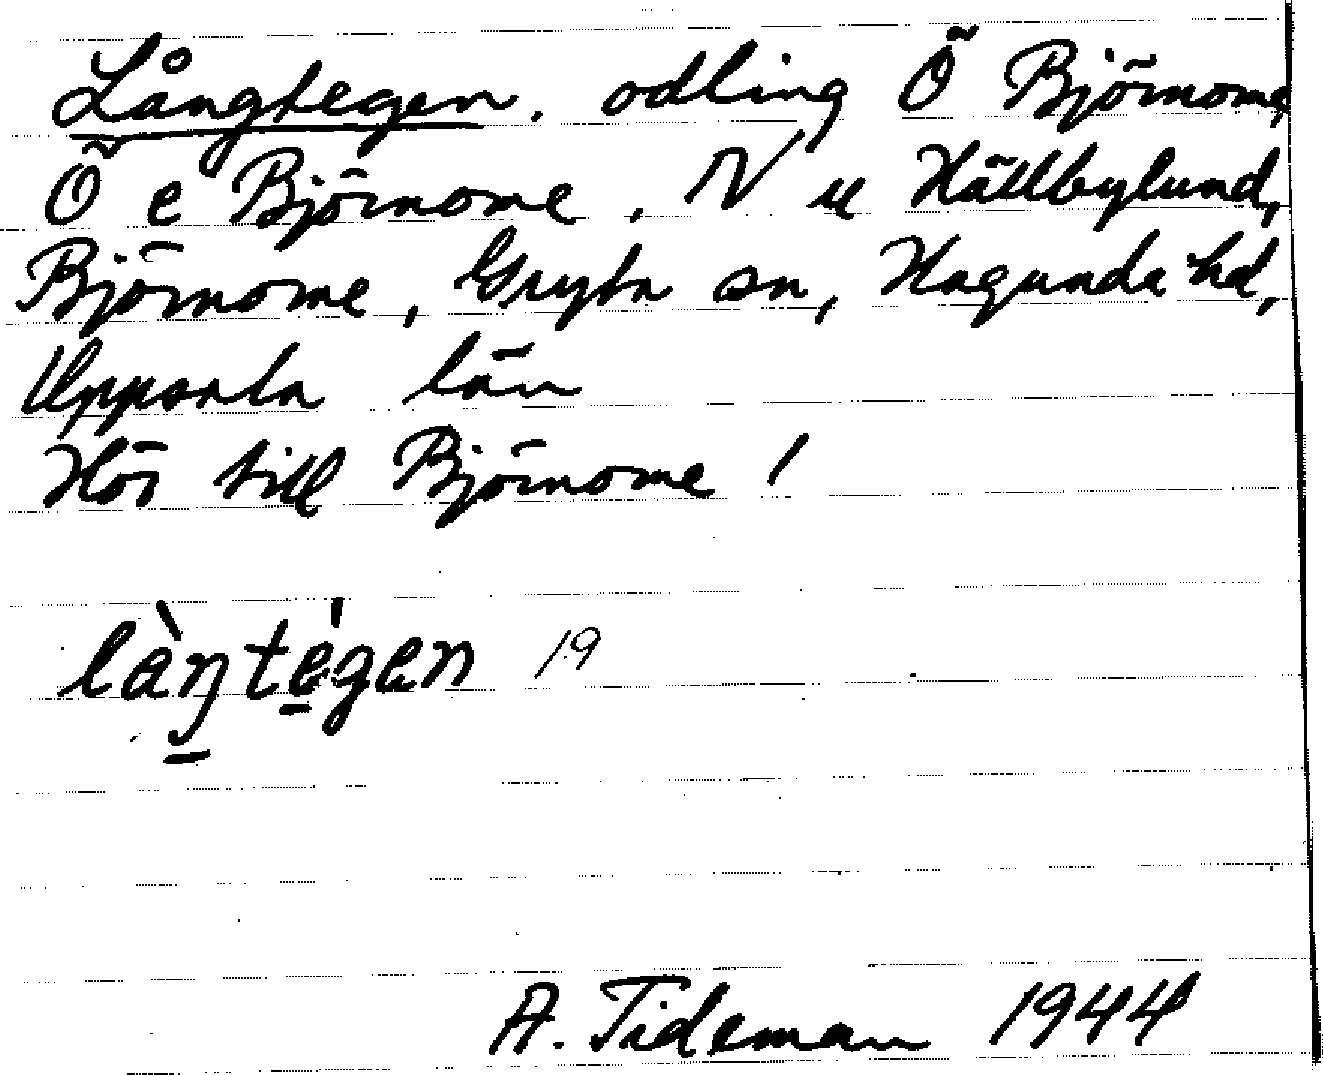 Långtegen. odling Ö Björnome,
Ö e Björnome. N u Hällbylund,
Björnome, Gryta sn, Hagunda hd,
Uppsala län
Hör till Björnome!
làŋtégen 19
A. Tideman 1944